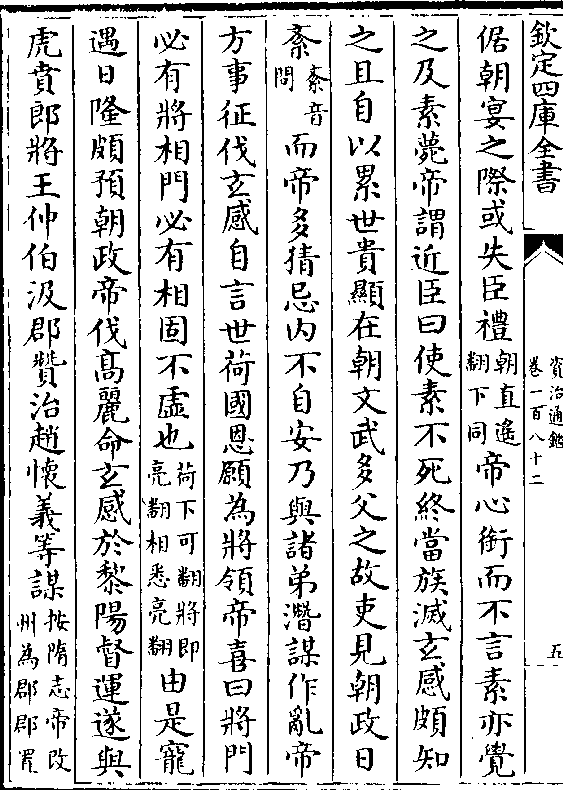 欽定四庫全書
資治通鑑
卷一百八十二
五
倨朝宴之際或失臣禮朝直遙翻下同帝心銜而不言素亦覺
之及素薨帝謂近臣曰使素不死終當族滅玄感頗知
之且自以累世貴顯在朝文武多父之故吏見朝政日
紊紊音問而帝多猜忌内不自安乃與諸弟潛謀作亂帝
方事征伐玄感自言世荷國恩願為將領帝喜曰將門
必有將相門必有相固不虚也荷下可翻將即亮翻相悉亮翻由是寵
遇日隆頗預朝政帝伐髙麗命玄感於黎陽督運遂與
虎賁郎將王仲伯汲郡贊治趙懷義等謀按隋志帝改州為郡郡置